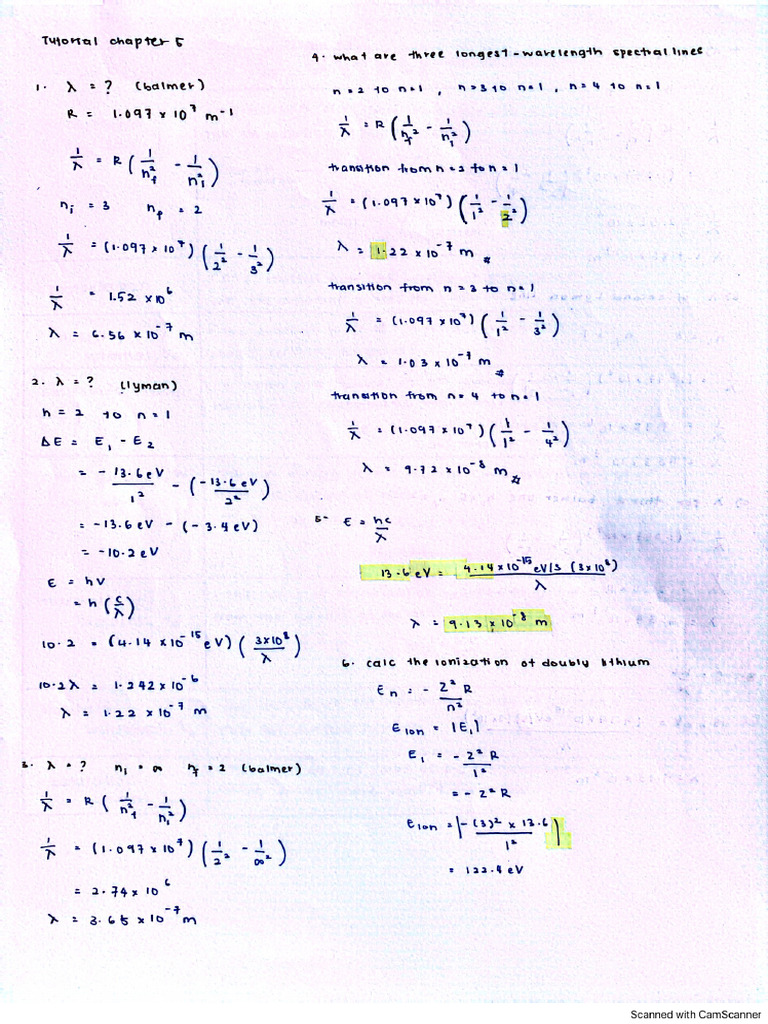 Tutorial chapter 5
1. λ = ? (balmer)
R = 1.097 × 10⁷ m⁻¹
1/λ = R (1/n_f² - 1/n_i²)
n_i = 3 n_f = 2
1/λ = (1.097 × 10⁷) (1/2² - 1/3²)
1/λ = 1.52 × 10⁶
λ = 6.56 × 10⁻⁷ m
2. λ = ? (lyman)
n = 2 to n = 1
ΔE = E₁ - E₂
= -13.6 eV/1² - (-13.6 eV/2²)
= -13.6 eV - (-3.4 eV)
= -10.2 eV
E = hv
= h (c/λ)
10.2 = (4.14 × 10⁻¹⁵ eV) (3×10⁸/λ)
10.2λ = 1.242 × 10⁻⁶
λ = 1.22 × 10⁻⁷ m
3. λ = ? n_i = ∞ n_f = 2 (balmer)
1/λ = R (1/n_f² - 1/n_i²)
1/λ = (1.097 × 10⁷) (1/2² - 1/∞²)
= 2.74 × 10⁶
λ = 3.65 × 10⁻⁷ m
4. what are three longest-wavelength spectral lines
n = 2 to n = 1 , n = 3 to n = 1 , n = 4 to n = 1
1/λ = R (1/n_f² - 1/n_i²)
transition from n = 2 to n = 1
1/λ = (1.097 × 10⁷) (1/1² - 1/2²)
λ = 1.22 × 10⁻⁷ m #
transition from n = 3 to n = 1
1/λ = (1.097 × 10⁷) (1/1² - 1/3²)
λ = 1.03 × 10⁻⁷ m #
transition from n = 4 to n = 1
1/λ = (1.097 × 10⁷) (1/1² - 1/4²)
λ = 9.72 × 10⁻⁸ m #
5- E = hc/λ
13.6 eV = 4.14 × 10⁻¹⁵ eV/s (3×10⁸)/λ
λ = 9.13 × 10⁻⁸ m
6. calc the ionization of doubly lithium
E_n = - Z²R/n²
E_ion = |E₁|
E₁ = - Z²R/1²
= - Z²R
E_ion = |-(3)² × 13.6/1²|
= 122.4 eV
Scanned with CamScanner